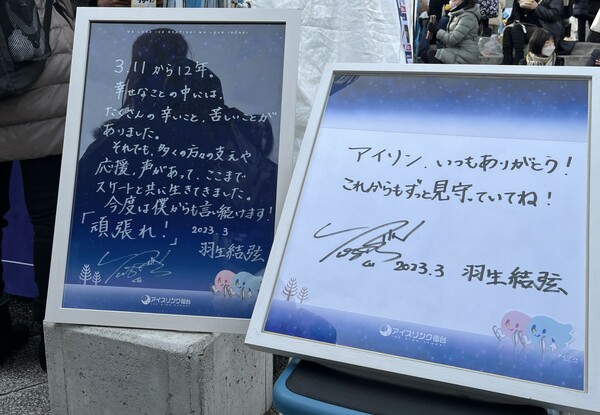 WE LOVE ICE SKATING! WE LOVE SENDAI!
3.11から12年。
幸せなことの中には、
たくさんの辛いこと、苦しいことが
ありました。
それでも、多くの方々の支えや
応援、声があって、ここまで
スケートと共に生きてきました。
今度は僕からも言い続けます!
「頑張れ!」
2023.3
羽生結弦
アイスリンク仙台
アイリン、いつもありがとう!
これからもずっと見守っていてね!
2023.3 羽生結弦
アイスリンク仙台